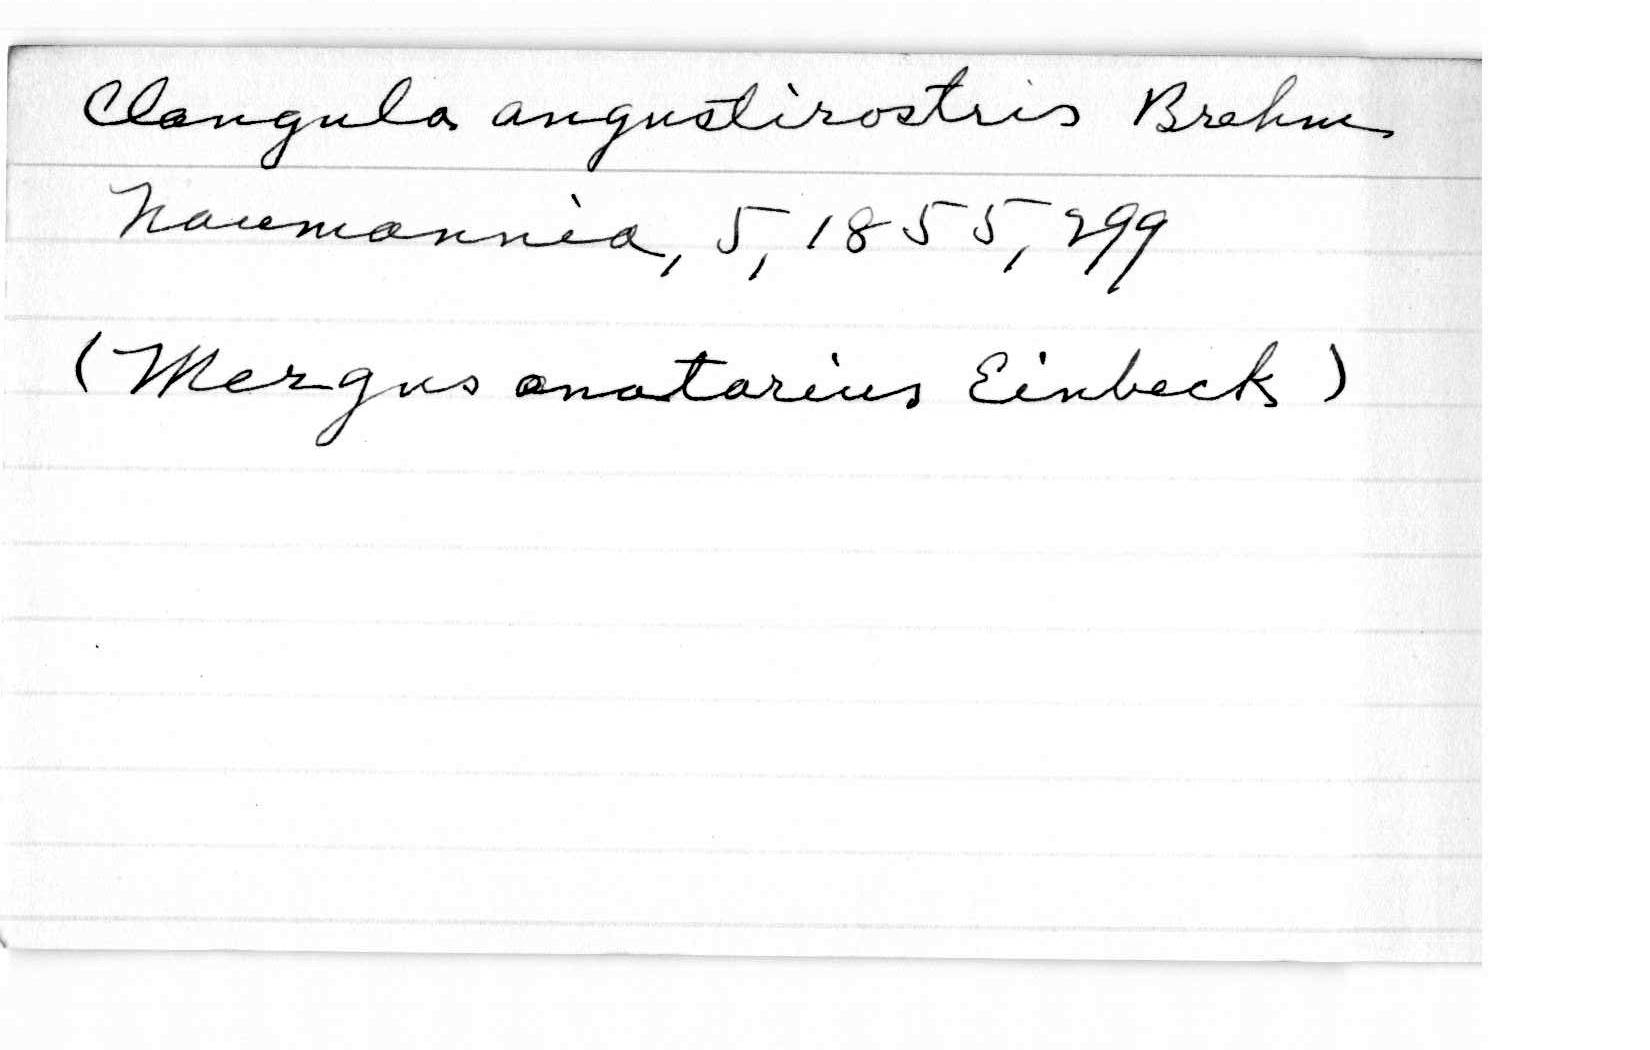 Clangula angustirostris Brehm
Naumannia, 5, 1855, 299
(Mergus anatarius Einbeck)